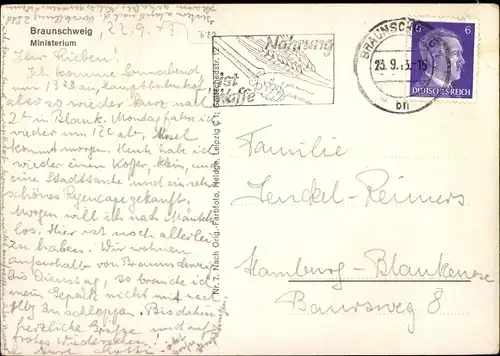 Braunschweig
Ministerium
22.9.43
Ihr Lieben.
Ich komme Sonnabend
um 13 22 an, Hauptbahnhof
also so wieder kurz nach
2h in Blank. Montag fahre ich
wieder um 12h ab.
kommt morgen. Heute habe ich
wieder einen Koffer, klein, und
eine Stadttasche und ein sehr
schönes Regencape gekauft.
Morgen will ich nach
los. Hier ist noch allerlei
zu haben. Wir wohnen
außerhalb von Braunschweig
bis Dienstag, so brauche ich
mein Gepäck nicht mit nach
Hbg. anschleppen. Bis dahin
herzliche Grüße und auf
frohes Wiedersehen!
Eure Lotti
Nr. 7. Nach Orig.-Farbfoto, Heldge, Leipzig C 1,
Nahrung
ist
Waffe
BRAUNSCHWEIG
23.9.43.-15
bn
6 6
DEUTSCHES REICH
Familie
Jenckel-Reimers
Hamburg-Blankenese
Baursweg 8